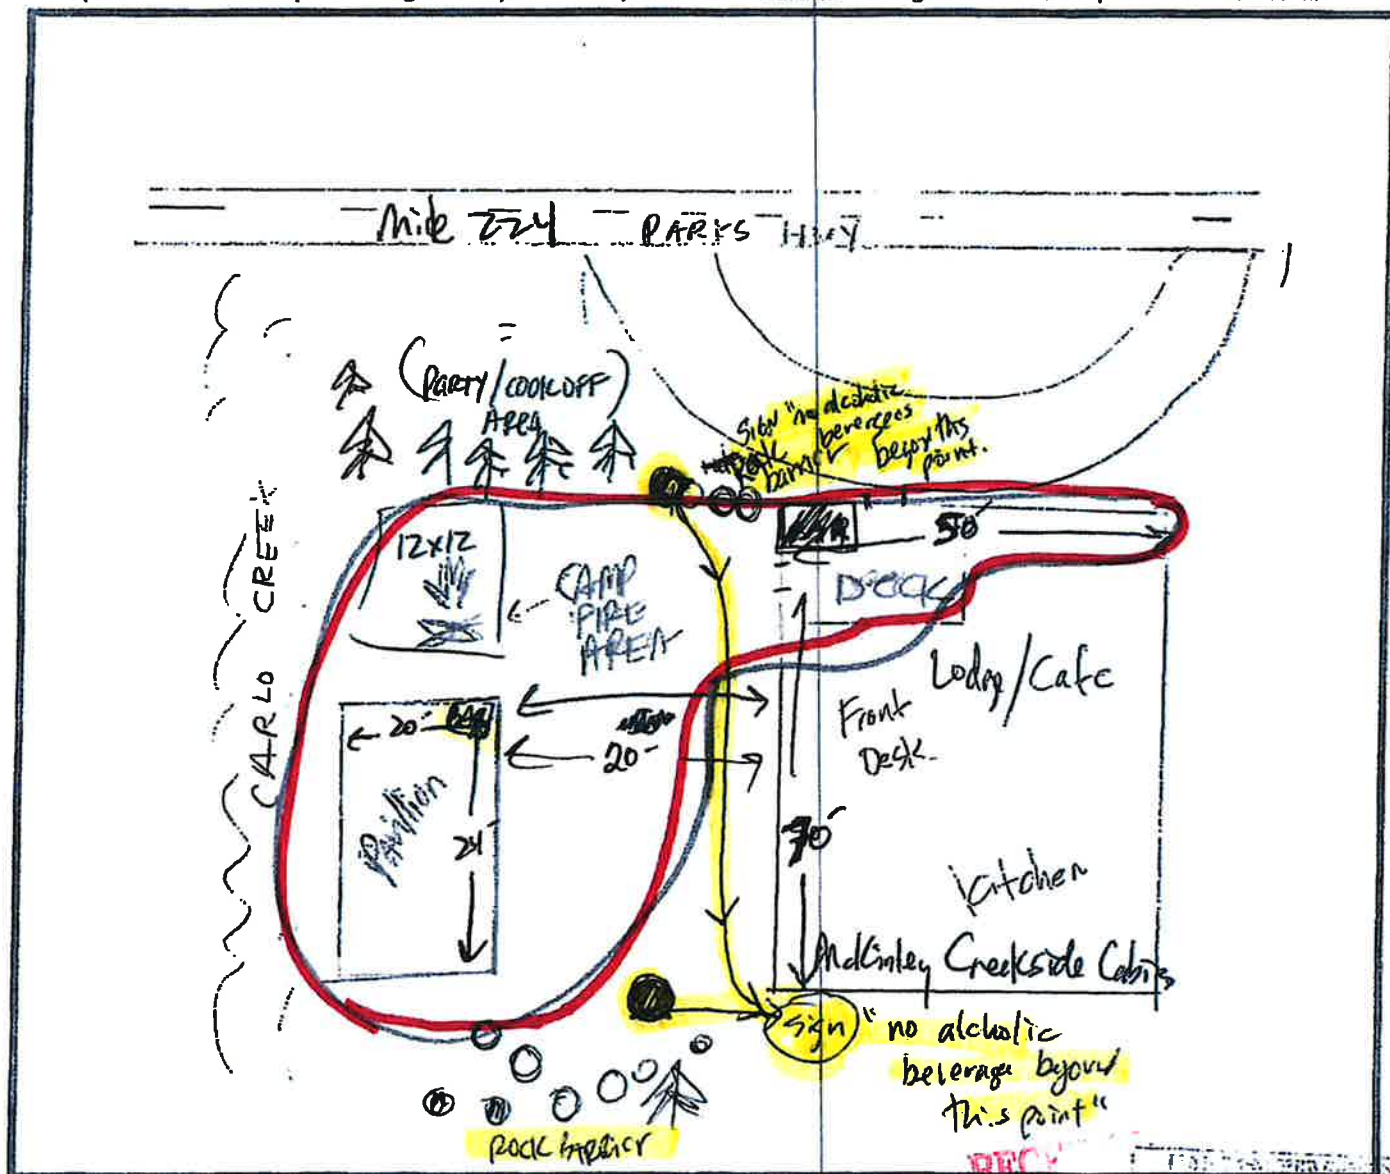 Mile 224 PARKS HWY
(PARTY/COOKOFF)
AREA
Sign "no alcoholic
beverages
beyon this
point.
barrier
CARLO CREEK
12x12
CAMP
FIRE
AREA
50'
DECK
Lodge/Cafe
Front
Desk.
20'
BAR
20'
Pavillion
24'
70'
kitchen
McKinley Creekside Cabins
sign "no alcholic
beverage byond
this point"
ROCK BARRIER